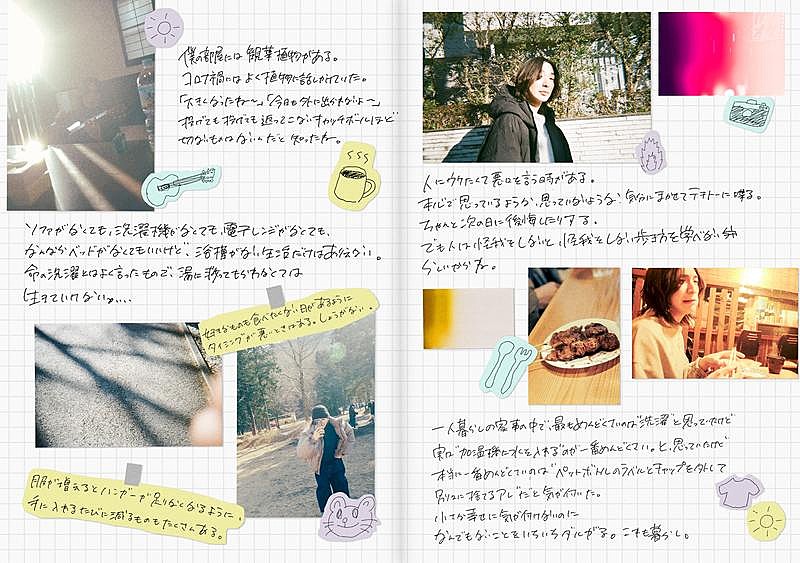 僕の部屋には観葉植物がある。
コロナ禍にはよく植物に話しかけていた。
「大きくなったね〜」「今日も外に出られないよ〜」
投げても投げても返ってこないキャッチボールほど
切ないものはないんだと知ったね。
ソファがなくても、洗濯機がなくても、電子レンジがなくても、
なんならベッドがなくてもいいけど、浴槽がない生活だけはありえない。
命の洗濯とはよく言ったもので、湯に救ってもらわなくては
生きていけないわ...
好きなものも食べたくない日があるように
タイミングが悪いときはある。しょうがない。
服が増えるとハンガーが足りなくなるように、
手に入れるたびに減るものもたくさんある。
人にウケたくて悪口を言う時がある。
本心で思っているような、思っていないような、気分にまかせてテキトーに喋る。
ちゃんと次の日に後悔したりする。
でも人は怪我をしないと、怪我をしない歩き方を学べない
らしいからな。
一人暮らしの家事の中で、最もめんどくさいのは"洗濯"と思っていたけど
実は"加湿機に水を入れる"が一番めんどくさい。と、思っていたけど
本当に一番めんどくさいのは"ペットボトルのラベルとキャップを外して
別々に捨てるアレ"だと気が付いた。
小さな幸せに気が付けないのに
なんでもないことをいちいちダルがる。これも暮らし。